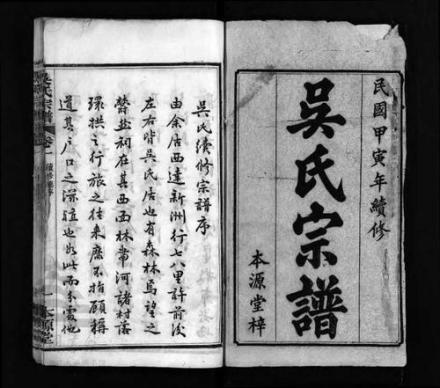 民國甲寅年續修
吳氏宗譜
本源堂梓
吳氏續修宗譜序
由余居西達新洲行七八里許前後
左右皆吳氏居也有森林焉望之
蔚然祠在其西西林帶河諸村落
環拱之行旅之往來靡不指顧稱
道其戶口之深殖也如此而分處他
吳氏宗譜 卷一 續修譜序
一 本源堂